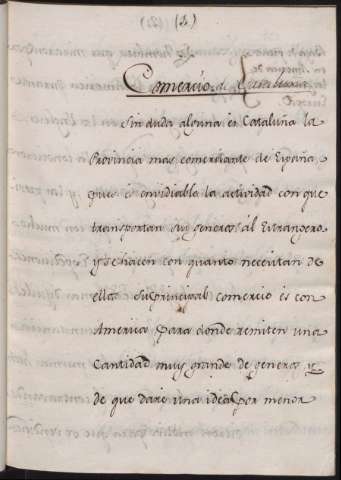 Comercio de Cataluña
Sin duda alguna es Cataluña la
Provincia mas comerciante de España
pues es envidiable la actividad con que
transportan sus generos al Estrangero
y se hacen con quanto necesitan de
ellas. Su principal comercio es con
America, para donde remiten una
Cantidad muy grande de generos y
de que daré una idea por menor